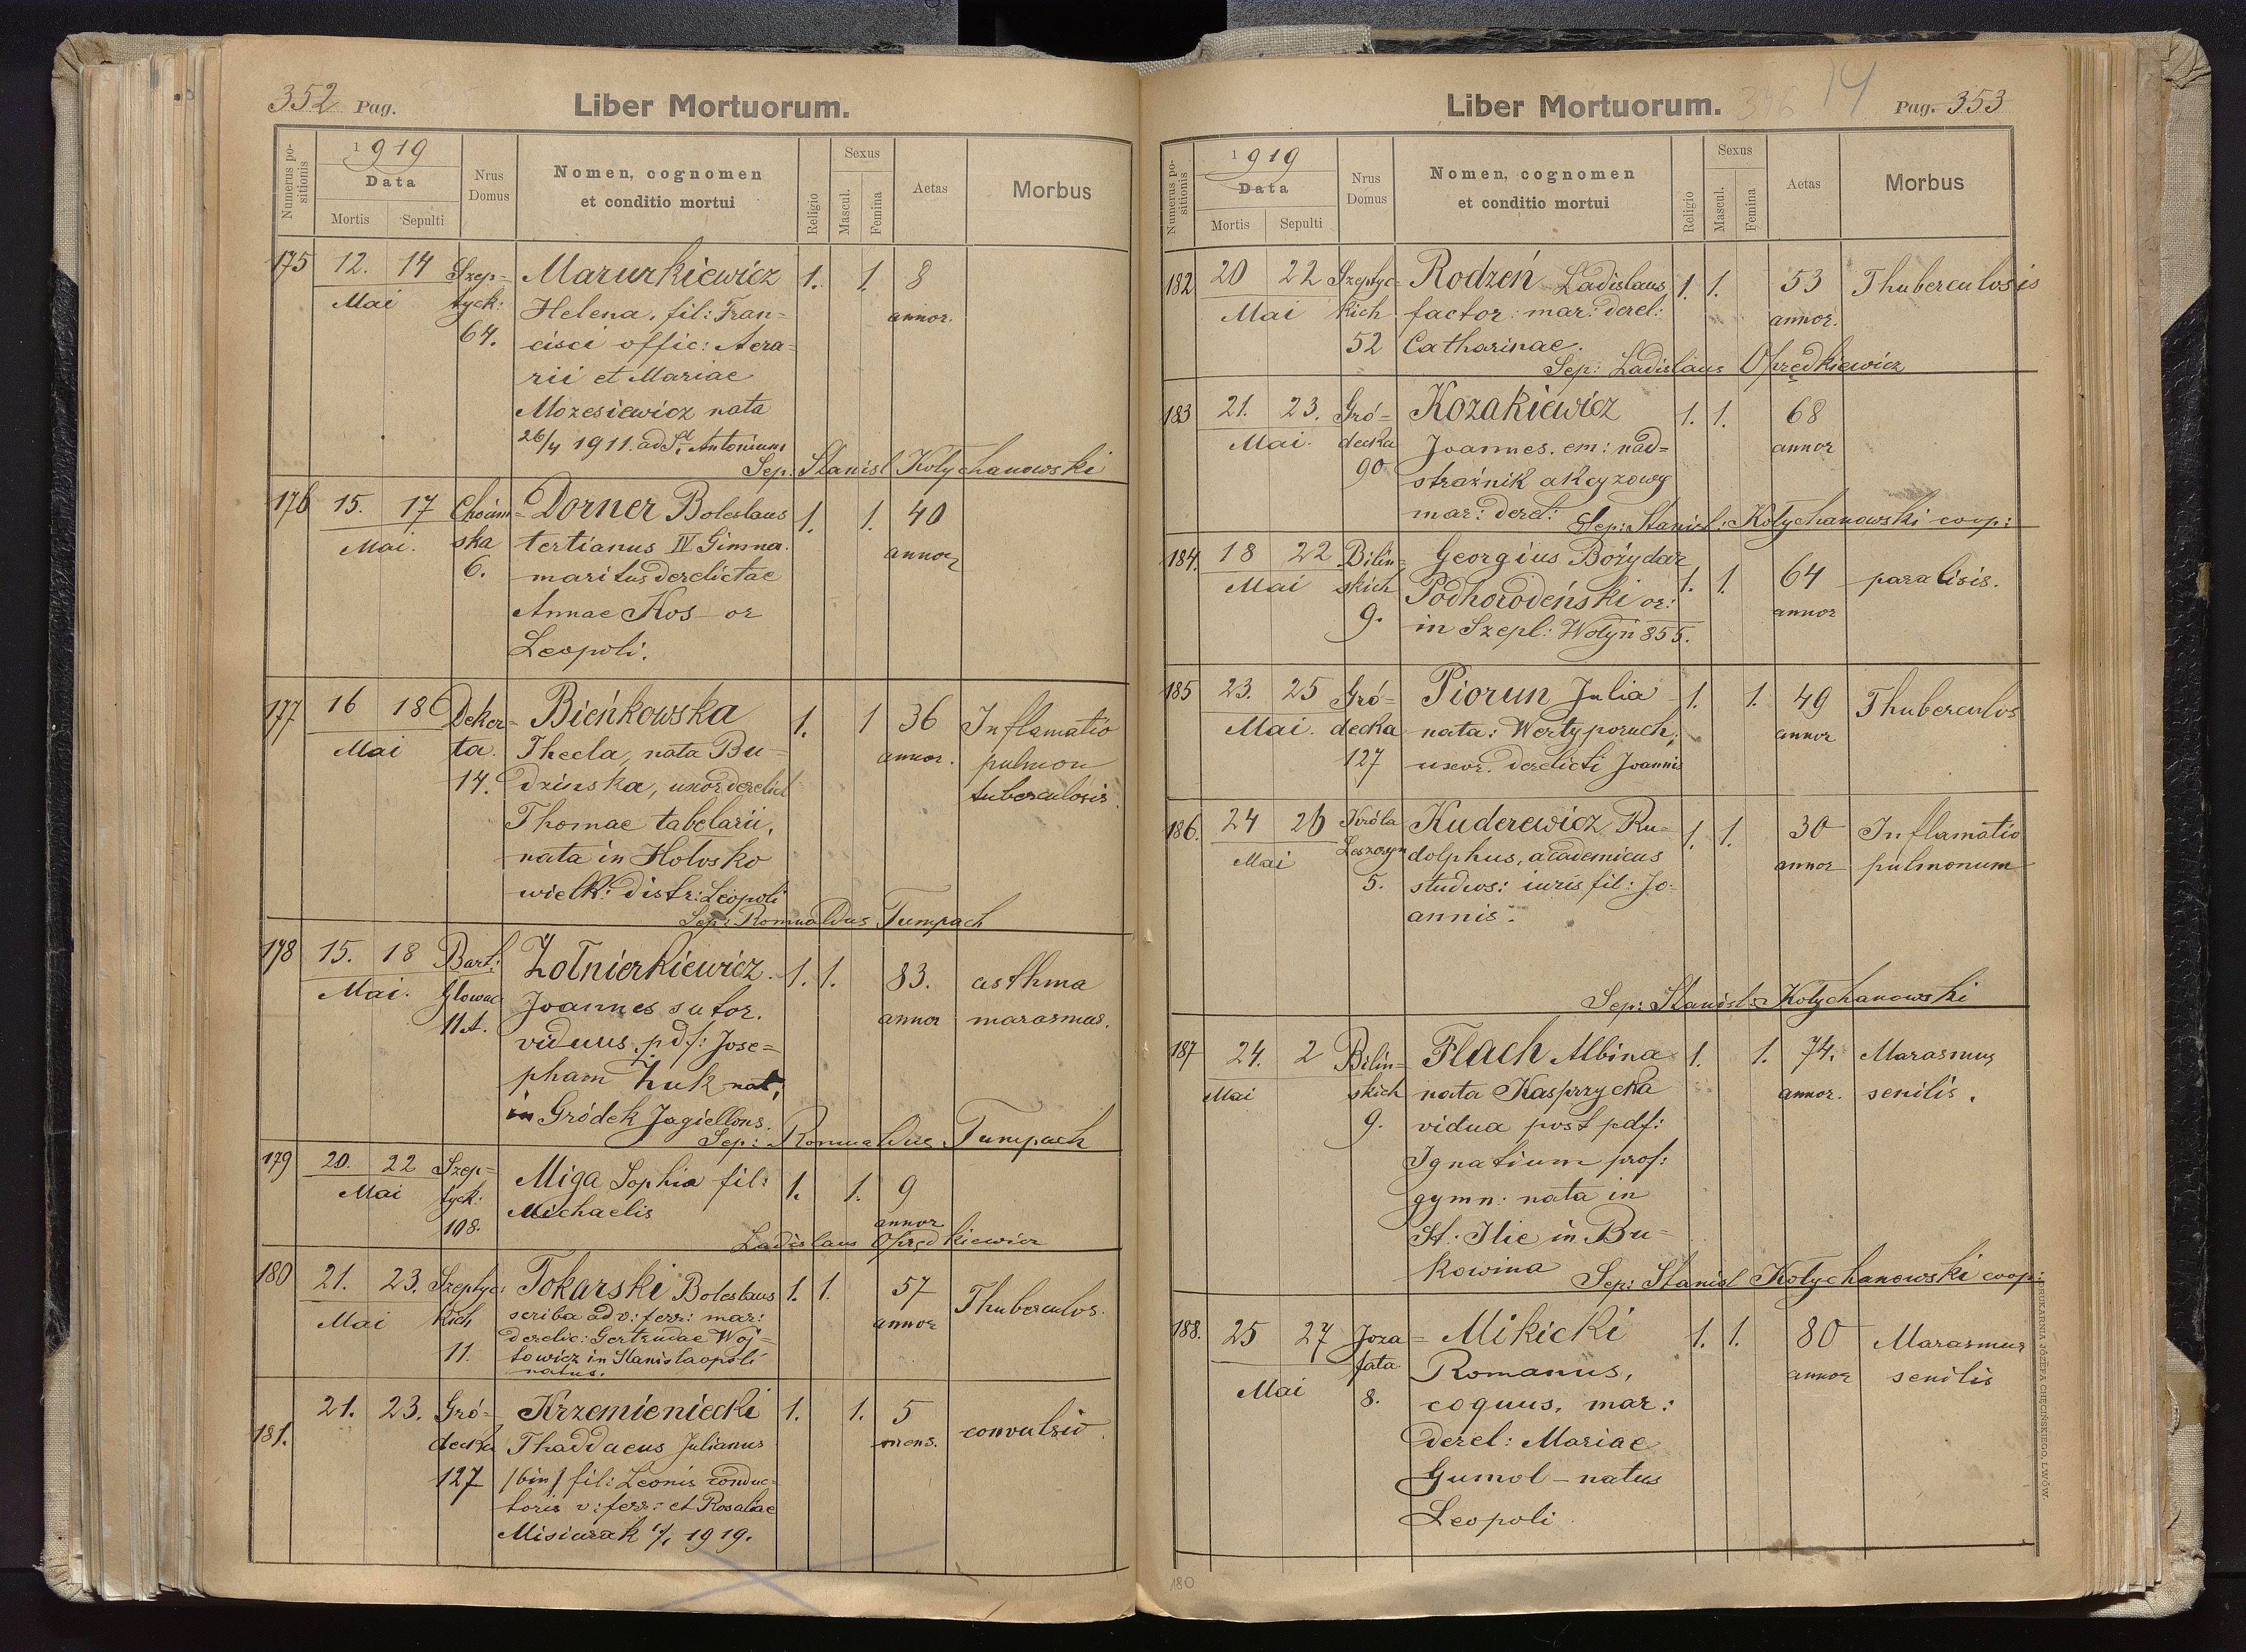 352 Pag.
Liber Mortuorum.
Numerus po-
sitionis
1919
Data
Mortis Sepulti
Nrus
Domus
Nomen, cognomen
et conditio mortui
Religio
Sexus
Mascul.
Femina
Aetas
Morbus
175 12. 14 Szep= Marurkiewicz 1. 1. 8
Mai tyck: Helena, fil: Fran= annor.
64. cisci offic: Aera=
rii et Mariae
Mozesiewicz nata
26/4 1911. ad St. Antonium
Sep: Stanisl Kotychanowski
176 15. 17 Chocim= Dorner Boleslaus 1. 1. 40
Mai. ska tertianus IV Gimna. annor
6. maritus derelictae
Annae Kos - or
Leopoli.
177 16 18 Deker= Bieńkowska 1. 1 36 Inflamatio
Mai ta. Thecla, nata Bu= annor. pulmon
14. dzinska, uxor derelict tuberculosis.
Thomae tabelarii,
nata in Holosko
wielk: distr: Leopoli
Sep: Romualdus Tumpach
178 15. 18 Bart: Żołnierkiewicz. 1. 1. 83. asthma
Mai. Glowac Joannes sutor. annor marasmus.
11A. viduus pdf: Jose=
pham Żuk nat,
in Gródek Jagiellons.
Sep: Romualdus Tumpach
179 20. 22 Szep= Miga Sophia fil: 1. 1. 9
Mai tyck: Michaelis annor
108.
Ladislaus Oprędkiewicz
180 21. 23. Szeptyc: Tokarski Boleslaus 1. 1. 57 Thuberculos.
Mai kich scriba ad v: ferr: mar: annor
11. derelic: Gertrudae Woj=
towicz in Stanislaopoli
natus.
181. 21. 23. Gró= Krzemieniecki 1. 1. 5 convulsio.
decka Thaddaeus Julianus mens.
127 /bin/ fil: Leonis conduc=
toris v: ferr: et Rosaliae
Misiurak 1/1 1919.
Liber Mortuorum.
Pag. 353
Numerus po-
sitionis
1919
Data
Mortis Sepulti
Nrus
Domus
Nomen, cognomen
et conditio mortui
Religio
Sexus
Mascul.
Femina
Aetas
Morbus
182 20 22 Szeptyc= Rodzeń Ladislaus 1. 1. 53 Thuberculosis
Mai kich factor: mar: derel: annor.
52 Catharinae.
Sep: Ladislaus Oprędkiewicz
183 21. 23. Gró= Kozakiewicz 1. 1. 68
Mai. decka Joannes. em: nad= annor
90 strażnik akcyzowy
mar: derel:
Sep: Stanisl: Kotychanowski coop:
184. 18 22 Bilin= Georgius Bożydar 1. 1. 64 paralisis.
Mai skich Podhorodeński or: annor
9. in Szepl: Wołyń 855.
185 23. 25 Gró= Piorun Julia 1. 1. 49 Thuberculos
Mai. decka nata: Wertyporuch, annor
127 uxor. derelicti Joannis
186. 24 26 Króla Kuderewicz Ru= 1. 1. 30 Inflamatio
Mai Leszczyn dolphus, academicus annor pulmonum
5. studios: iuris fil: Jo=
annis.
Sep: Stanisl: Kotychanowski
187 24. 2 Bilin= Flach Albina 1. 1. 74. Marasmus
Mai skich nata Kasprzycka annor. senilis.
9. vidua post pdf:
Ignatium prof:
gymn: nata in
St. Ilie in Bu=
kowina
Sep: Stanisl Kotychanowski coop:
188. 25 27 Joza= Mikicki 1. 1. 80 Marasmus
Mai fata Romanus, annor senilis
8. coquus, mar:
derel: Mariae
Gumol - natus
Leopoli.
DRUKARNIA JÓZEFA CHĘCIŃSKIEGO, LWÓW
180